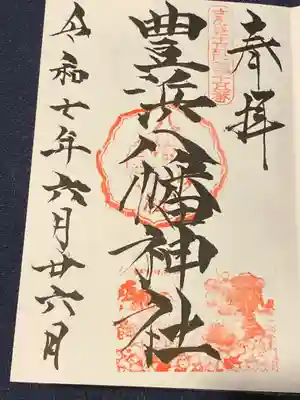 奉拝
豊浜八幡神社
令和七年六月廿六日